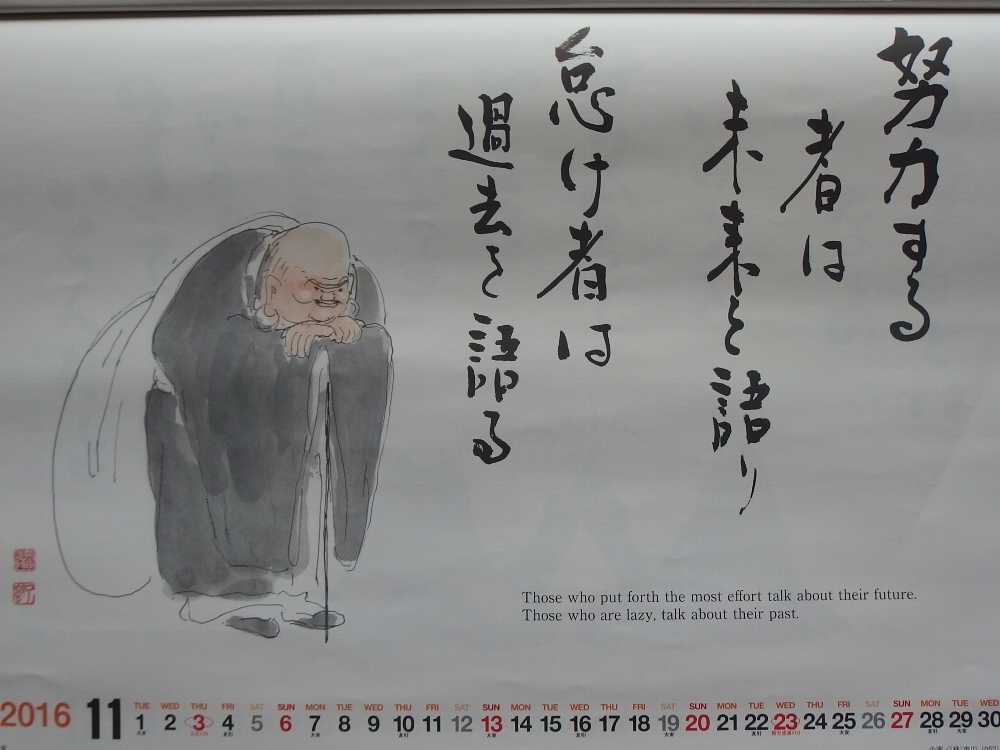 努力する
者は
未来を語り
怠け者は
過去を語る
Those who put forth the most effort talk about their future.
Those who are lazy, talk about their past.
2016 11
TUE WED THU FRI SAT SUN MON TUE WED THU FRI SAT SUN MON TUE WED THU FRI SAT SUN MON TUE WED THU FRI SAT SUN MON TUE WED
1 2 3 4 5 6 7 8 9 10 11 12 13 14 15 16 17 18 19 20 21 22 23 24 25 26 27 28 29 30